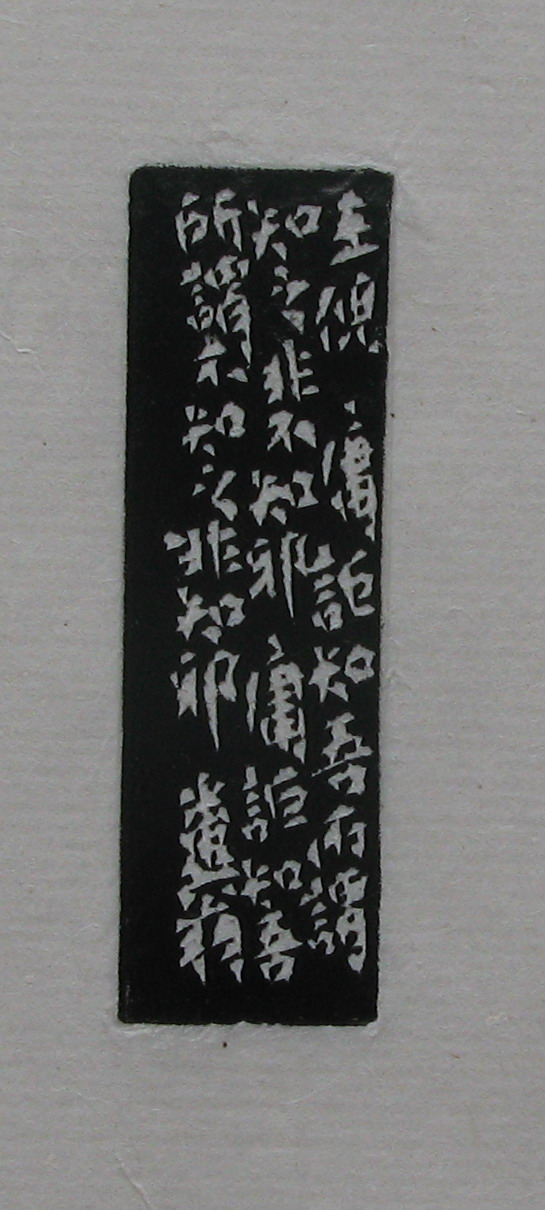 王倪 庸詎知吾所謂
知之非不知邪 庸詎知吾
所謂不知之非知邪